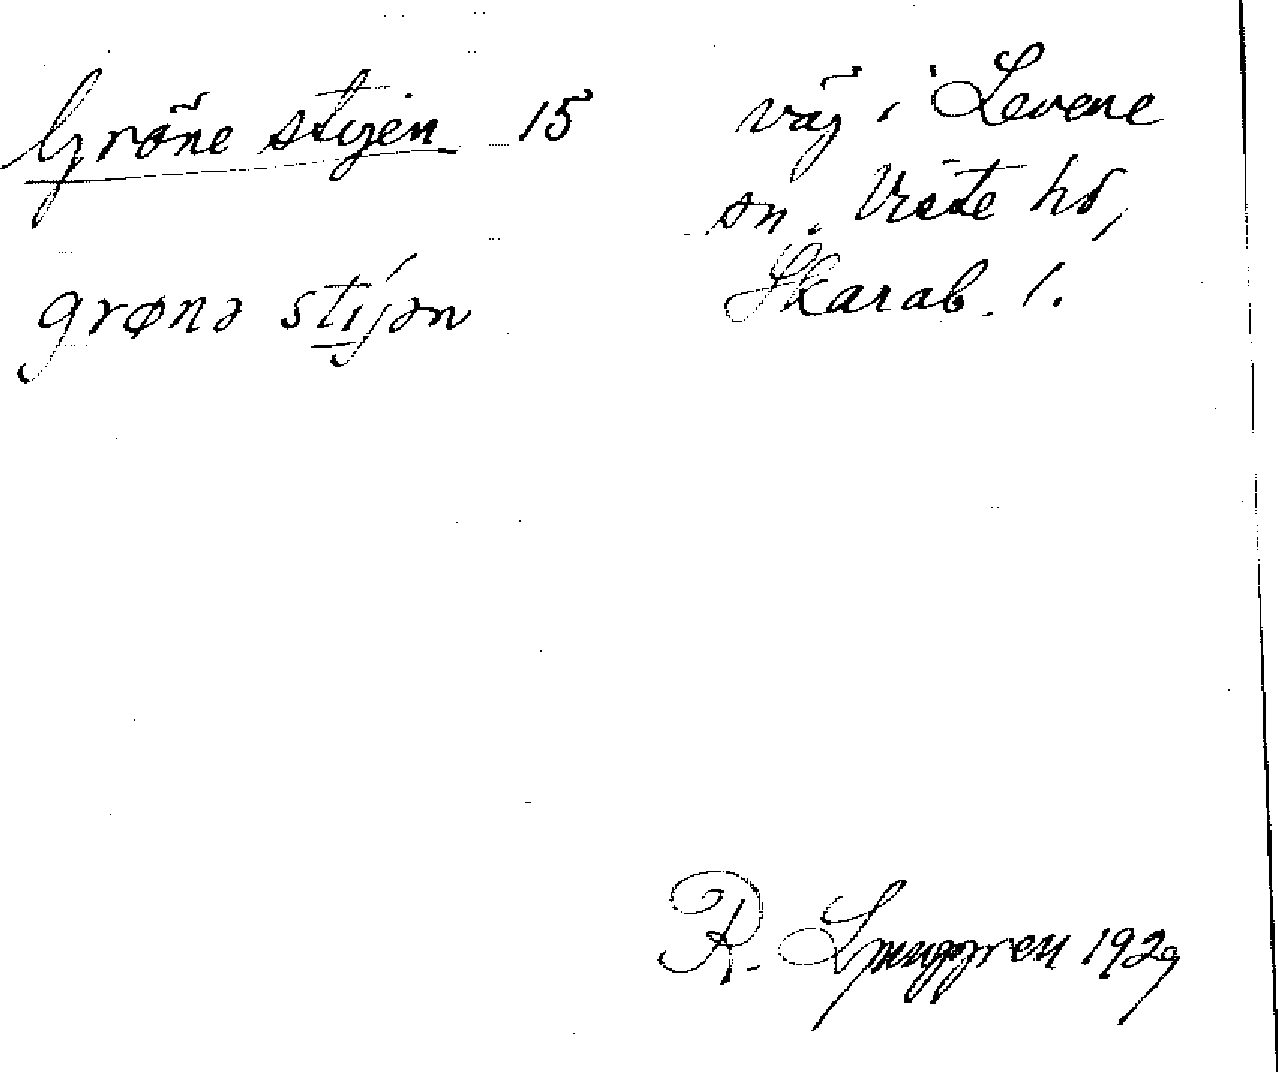 Gröne stijen 15
grønə stijən
väj i Levene
sn. Viste hd,
Skarab. l.
R. Ljunggren 1929